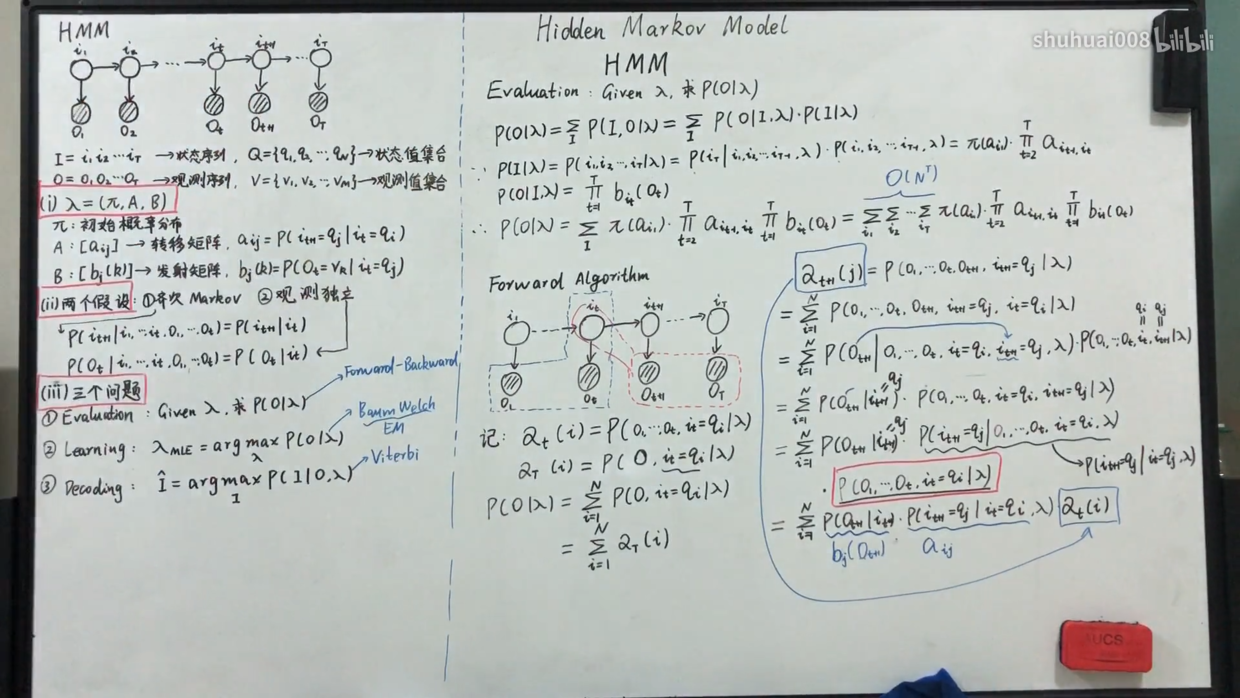 HMM
i₁ i₂ iₜ iₜ₊₁ i_T
→ → ⋯ → → ⋯
O₁ O₂ Oₜ Oₜ₊₁ O_T
I = i₁, i₂ ⋯ i_T → 状态序列, Q = {q₁, q₂, ⋯ q_N} → 状态值集合
O = O₁, O₂ ⋯ O_T → 观测序列, V = {v₁, v₂, ⋯ v_M} → 观测值集合
(i) λ = (π, A, B)
π: 初始概率分布
A: [aᵢⱼ] → 转移矩阵, aᵢⱼ = P(iₜ₊₁=qⱼ | iₜ=qᵢ)
B: [bⱼ(k)] → 发射矩阵, bⱼ(k) = P(Oₜ=v_k | iₜ=qⱼ)
(ii) 两个假设: ① 齐次 Markov ② 观测独立
P(iₜ₊₁ | i₁, ⋯ iₜ, O₁, ⋯ Oₜ) = P(iₜ₊₁ | iₜ)
P(Oₜ | i₁, ⋯ iₜ, O₁, ⋯ Oₜ) = P(Oₜ | iₜ)
(iii) 三个问题
① Evaluation: Given λ, 求 P(O|λ) → Forward-Backward
② Learning: λ_MLE = arg max_λ P(O|λ) → Baum Welch
EM
③ Decoding: Î = arg max_I P(I | O, λ) → Viterbi
Hidden Markov Model
shuhuai008 bilibili
HMM
Evaluation: Given λ, 求 P(O|λ)
P(O|λ) = Σ_I P(I, O|λ) = Σ_I P(O|I, λ)·P(I|λ)
∵ P(I|λ) = P(i₁, i₂ ⋯, i_T|λ) = P(i_T | i₁, i₂ ⋯ i_T₋₁, λ)·P(i₁, i₂, ⋯ i_T₋₁, λ) = π(a_i₁)·∏_{t=2}^{T} a_{iₜ₋₁, iₜ}
P(O|I, λ) = ∏_{t=1}^{T} b_{iₜ}(Oₜ)
O(N^T)
∴ P(O|λ) = Σ_I π(a_i₁)·∏_{t=2}^{T} a_{iₜ₋₁, iₜ} ∏_{t=1}^{T} b_{iₜ}(Oₜ) = Σ_{i₁} Σ_{i₂} ⋯ Σ_{i_T} π(a_i₁)·∏_{t=2}^{T} a_{iₜ₋₁, iₜ} ∏_{t=1}^{T} b_{iₜ}(Oₜ)
Forward Algorithm
i₁ iₜ iₜ₊₁ i_T
O₁ Oₜ Oₜ₊₁ O_T
记: αₜ(i) = P(O₁, ⋯, Oₜ, iₜ=qᵢ|λ)
α_T(i) = P(O, iₜ=qᵢ|λ)
P(O|λ) = Σ_{i=1}^{N} P(O, iₜ=qᵢ|λ)
= Σ_{i=1}^{N} α_T(i)
αₜ₊₁(j) = P(O₁, ⋯ Oₜ, Oₜ₊₁, iₜ₊₁=qⱼ | λ)
= Σ_{i=1}^{N} P(O₁, ⋯ Oₜ, Oₜ₊₁, iₜ₊₁=qⱼ, iₜ=qᵢ|λ)
qᵢ qⱼ
= Σ_{i=1}^{N} P(Oₜ₊₁ | O₁, ⋯ Oₜ, iₜ=qᵢ, iₜ₊₁=qⱼ, λ)·P(O₁, ⋯ Oₜ, iₜ, iₜ₊₁|λ)
qⱼ
= Σ_{i=1}^{N} P(Oₜ₊₁ | iₜ₊₁)·P(O₁, ⋯ Oₜ, iₜ=qᵢ, iₜ₊₁=qⱼ|λ)
qⱼ
= Σ_{i=1}^{N} P(Oₜ₊₁ | iₜ₊₁)·P(iₜ₊₁=qⱼ | O₁, ⋯ Oₜ, iₜ=qᵢ, λ)
→ P(iₜ₊₁=qⱼ | iₜ=qᵢ, λ)
· P(O₁, ⋯ Oₜ, iₜ=qᵢ|λ)
= Σ_{i=1}^{N} P(Oₜ₊₁ | iₜ₊₁)·P(iₜ₊₁=qⱼ | iₜ=qᵢ, λ) αₜ(i)
bⱼ(Oₜ₊₁) aᵢⱼ
UCS